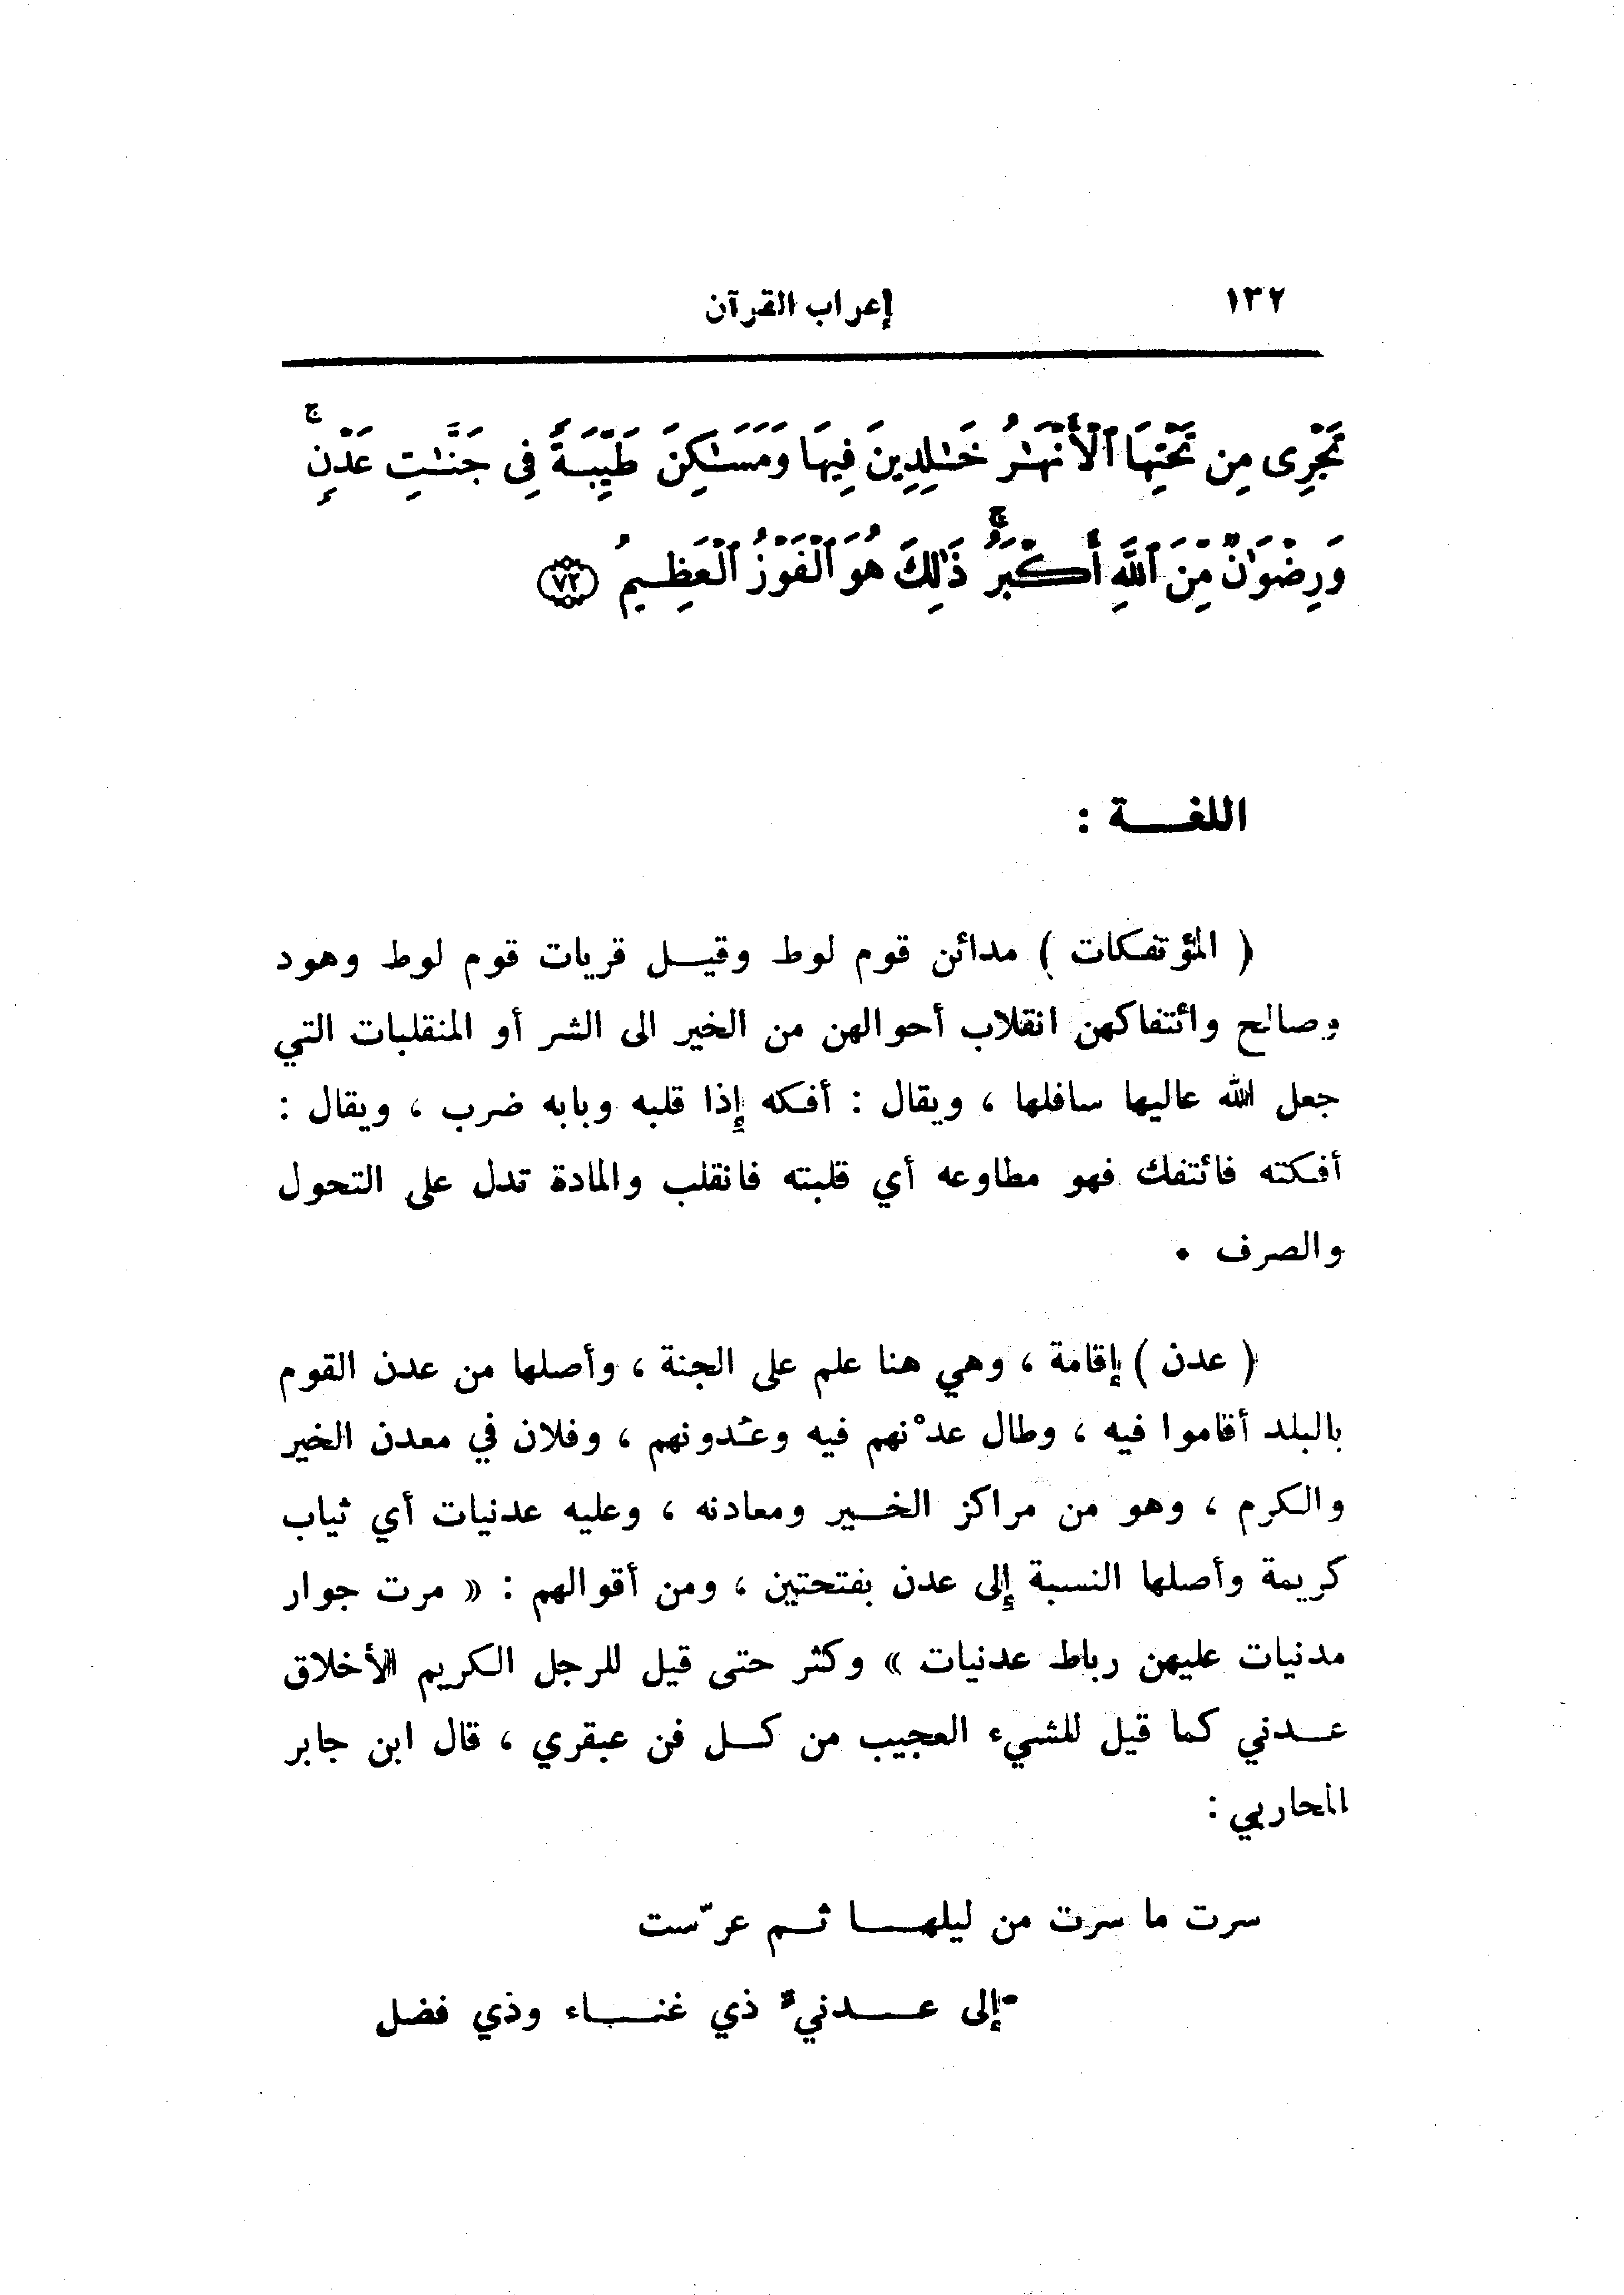 ١٣٢ إعراب القرآن
تَجْرِى مِن تَحْتِهَا ٱلْأَنْهَٰرُ خَٰلِدِينَ فِيهَا وَمَسَٰكِنَ طَيِّبَةً فِى جَنَّٰتِ عَدْنٍۚ
وَرِضْوَٰنٌ مِّنَ ٱللَّهِ أَكْبَرُۚ ذَٰلِكَ هُوَ ٱلْفَوْزُ ٱلْعَظِيمُ ٧٢
اللغـــة :
( المؤتفكات ) مدائن قوم لوط وقيــل قريات قوم لوط وهود
وصالح وائتفاكهن انقلاب أحوالهن من الخير الى الشر أو المنقلبات التي
جعل الله عاليها سافلها ، ويقال : أفكه إذا قلبه وبابه ضرب ، ويقال :
أفكته فائتفك فهو مطاوعه أي قلبته فانقلب والمادة تدل على التحول
والصرف .
( عدن ) إقامة ، وهي هنا علم على الجنة ، وأصلها من عدن القوم
بالبلد أقاموا فيه ، وطال عدْنهم فيه وعُدونهم ، وفلان في معدن الخير
والكرم ، وهو من مراكز الخــير ومعادنه ، وعليه عدنيات أي ثياب
كريمة وأصلها النسبة إلى عدن بفتحتين ، ومن أقوالهم : « مرت جوار
مدنيات عليهن رباط عدنيات » وكثر حتى قيل للرجل الكريم الأخلاق
عــدني كما قيل للشيء العجيب من كــل فن عبقري ، قال ابن جابر
المحاربي :
سرت ما سرت من ليلهـــا ثــم عرّست
إلى عـــدنيٍّ ذي غنـــاء وذي فضل